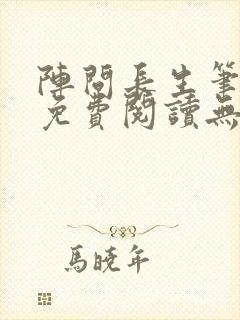 陣問長生筆
免費閱讀無
馬曉年